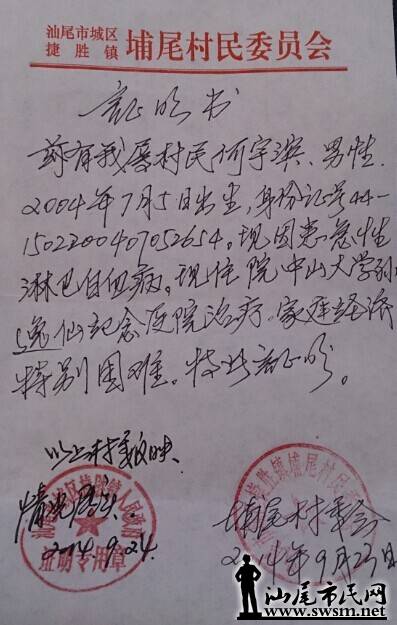 汕尾市城区
捷胜镇 埔尾村民委员会
证明书
兹有我居村民何宇滨、男性、
2004年7月5日出生,身份证号44-
1502200407052654。现因患急性
淋巴白血病。现住院中山大学孙
逸仙纪念医院治疗。家庭经济
特别困难。特此证明。
以上村委反映
情况属实。
2014.9.24.
证明专用章
埔尾村委会
2014年9月23日
汕尾市民网
www.swsm.net